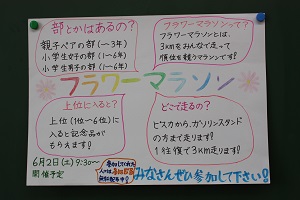 部とかはあるの?
親子ペアの部(1〜3年)
小学生女子の部(1〜6年)
小学生男子の部(1〜6年)
フラワーマラソンって?
フラワーマラソンとは、
3kmをみんなで走って
順位を競うマラソンです!
フラワーマラソン
上位に入ると?
上位(1位〜6位)に
入ると記念品が
もらえます!
どこで走るの?
ビスカから、ガソリンスタンド
の方まで走ります!
1往復で3km走ります!
6月2日(土)9:30〜
開催予定
参加してくれた
みなさんぜひ参加して下さい!